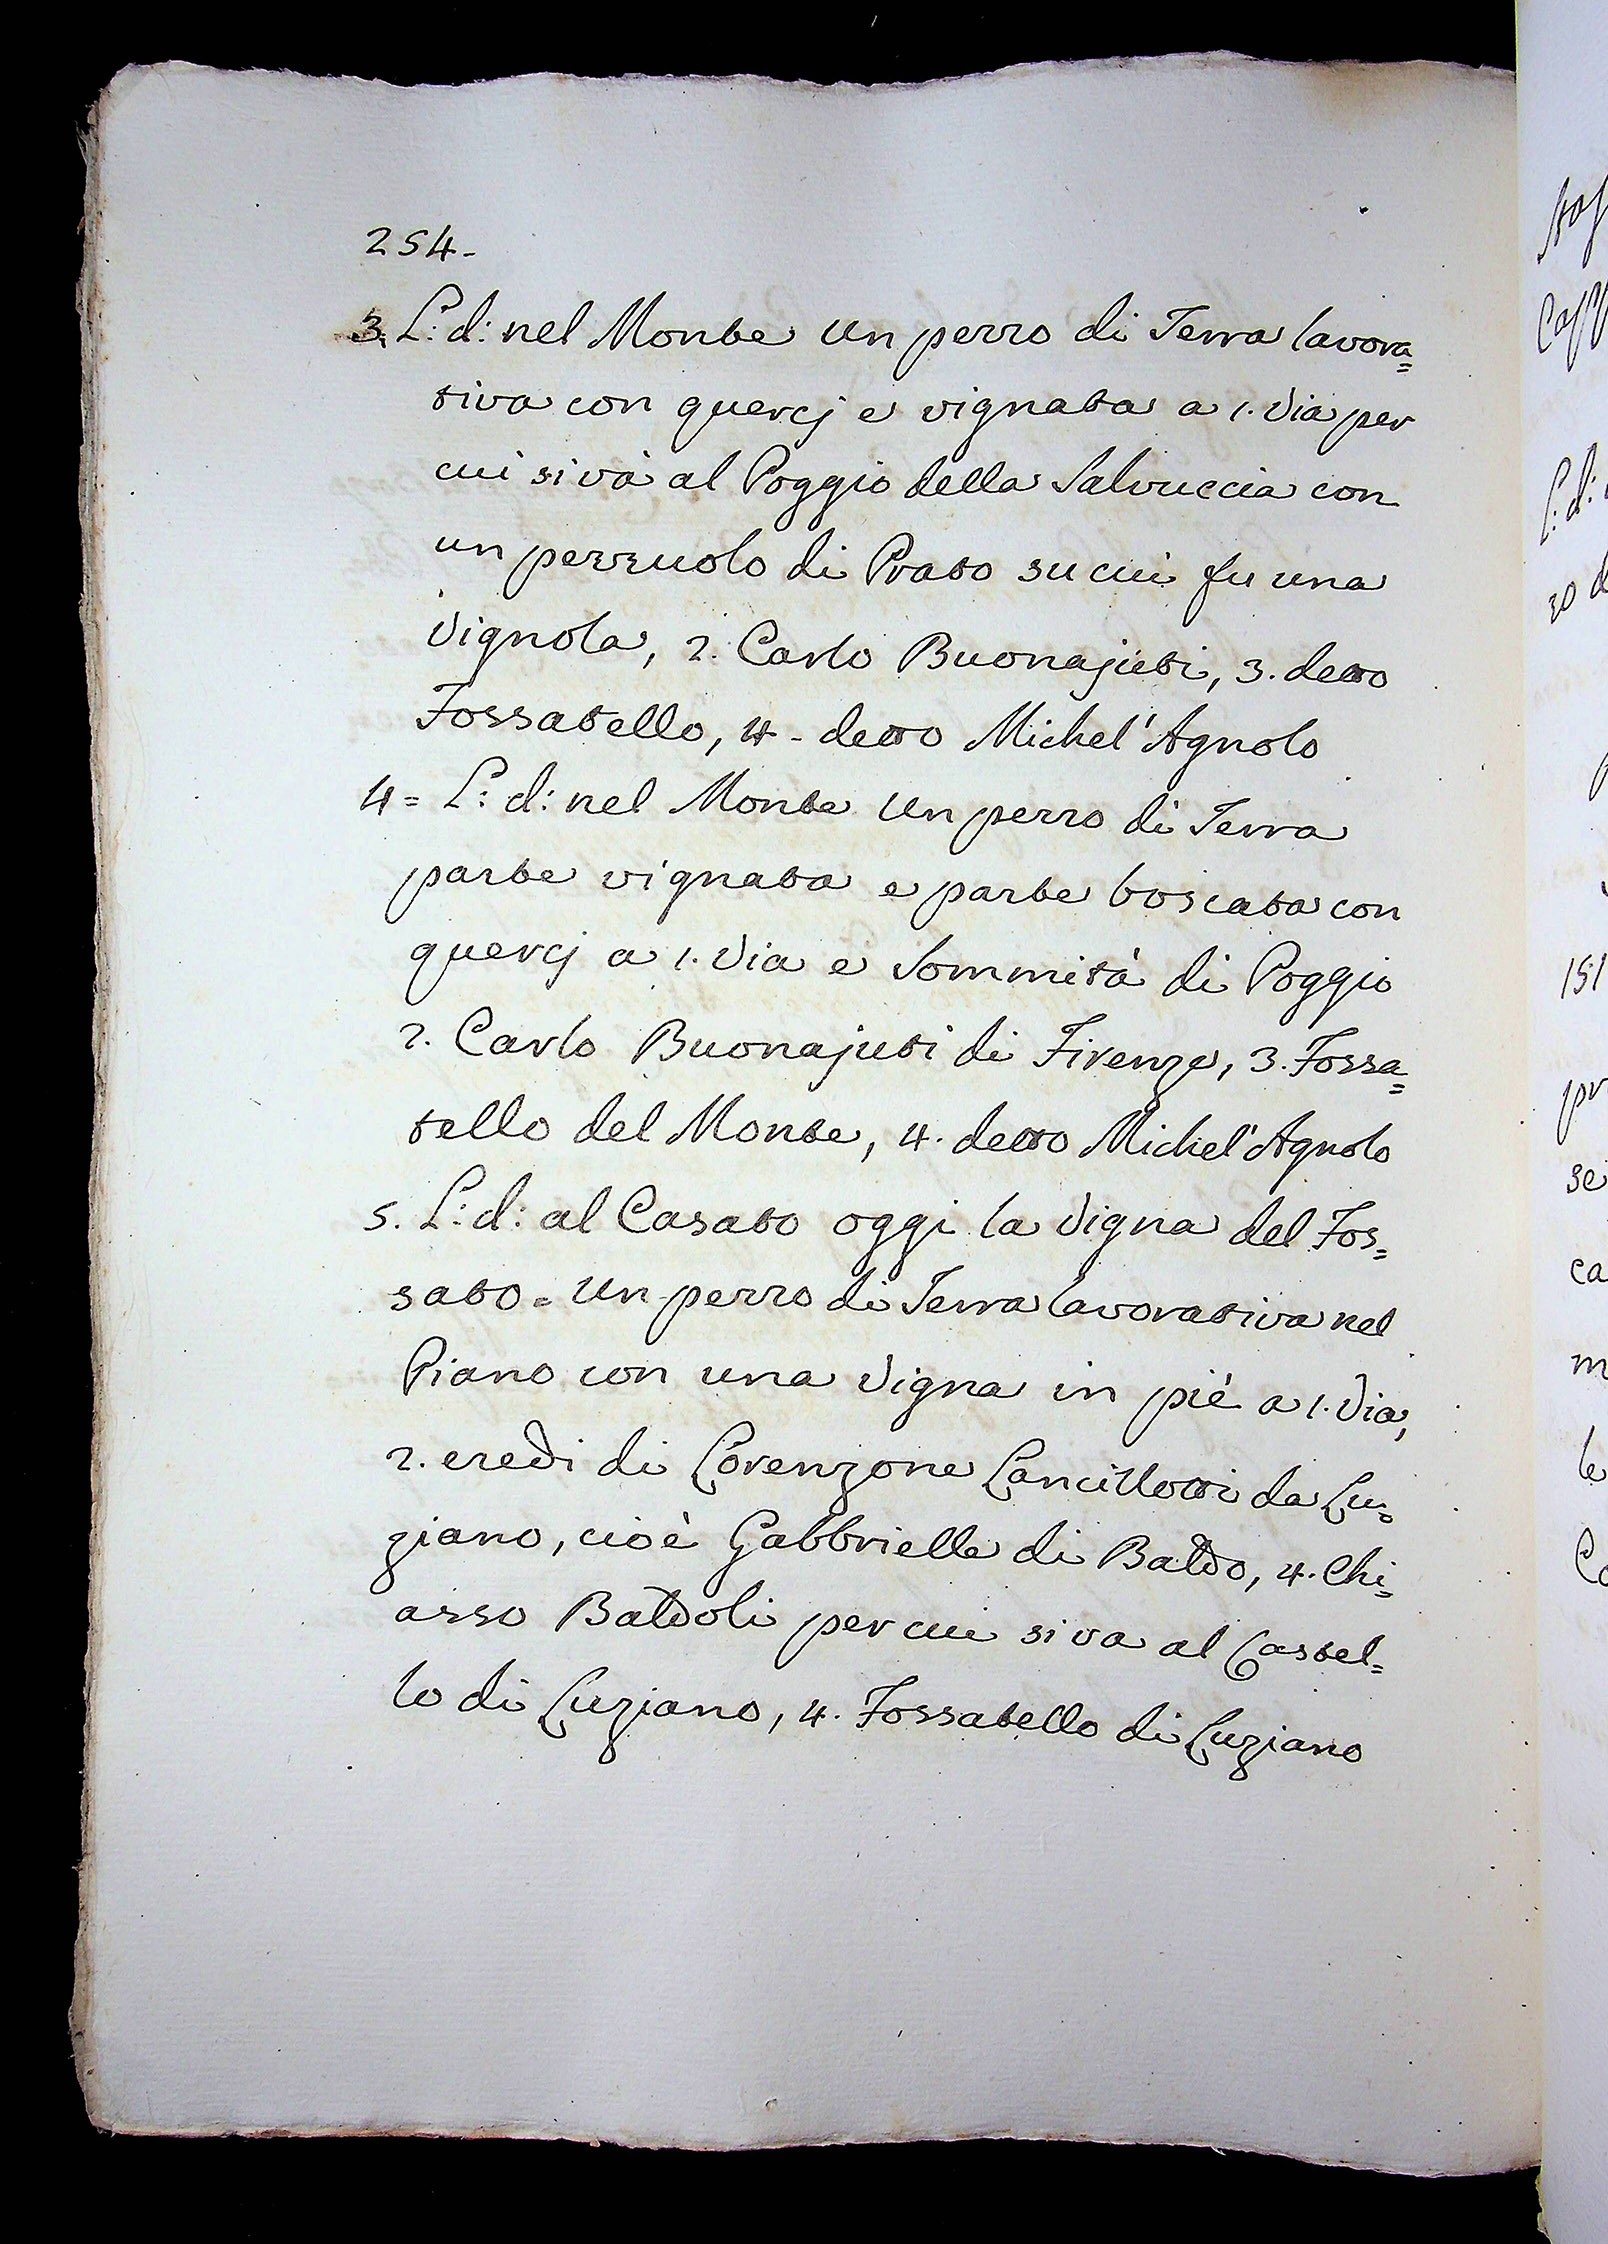 254.
3. L: d: nel Monte un pezzo di Terra lavora=
tiva con quercj e vignata a 1. Via per
cui si và al Poggio della Salvuccia con
un pezzuolo di Prato su cui fu una
Vignola, 2. Carlo Buonajuti, 3. detto
Fossatello, 4 - detto Michel' Agnolo
4 = L: d: nel Monte un pezzo di Terra
parte vignata e parte boscata con
quercj a 1. Via e Sommità di Poggio
2. Carlo Buonajuti di Firenze, 3. Fossa=
tello del Monte, 4. detto Michel' Agnolo
5. L: d: al Casato oggi la Vigna del Fos=
sato = un pezzo di Terra lavorativa nel
Piano con una Vigna in piè a 1. Via,
2. eredi di Lorenzone Lancillotti da Lu=
ziano, cioè Gabbrielle di Baldo, 4. Chi=
asso Baldoli per cui si va al Castel=
lo di Luziano, 4. Fossatello di Luziano
L: d:
151
se
ca
m
le